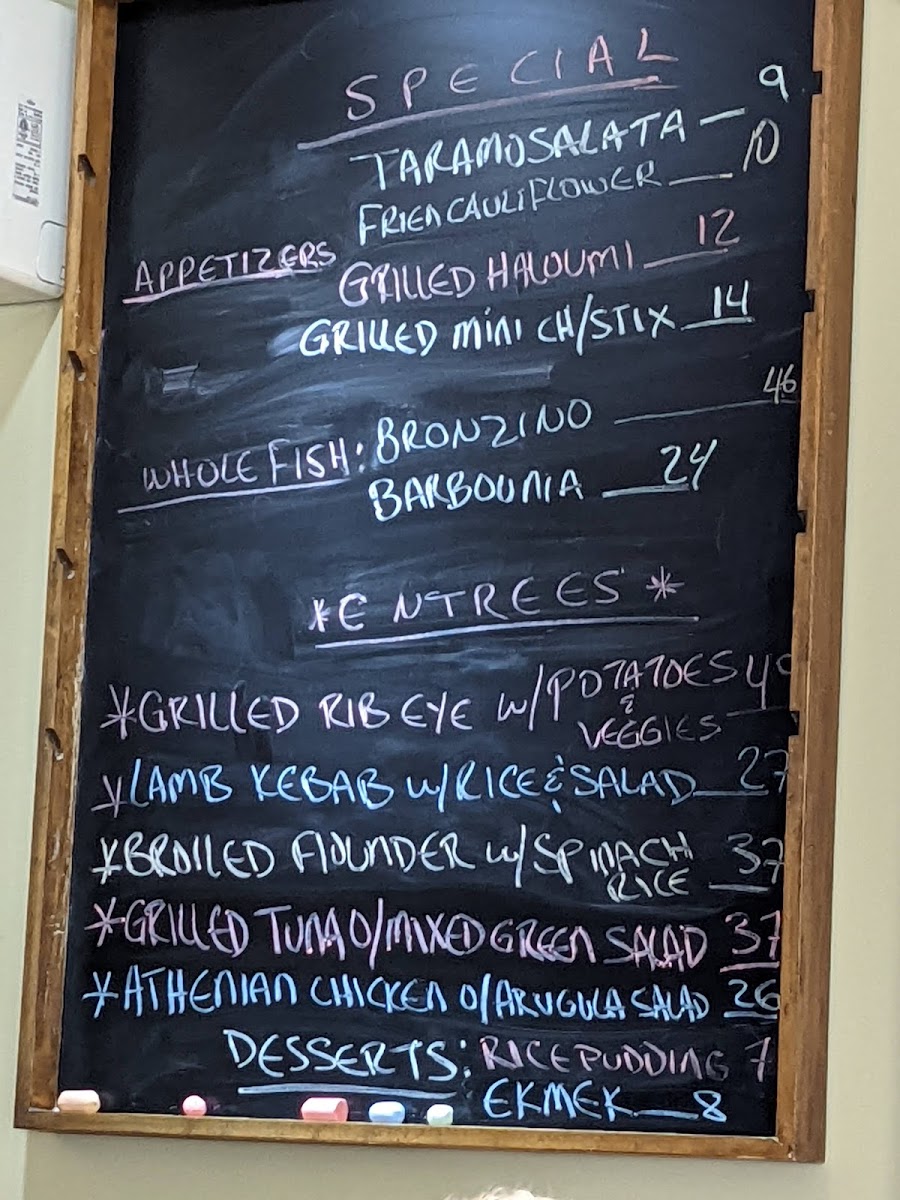 SPECIAL
TARAMOSALATA — 9
FRIED CAULIFLOWER — 10
APPETIZERS
GRILLED HALOUMI — 12
GRILLED MINI CH/STIX — 14
WHOLE FISH: BRONZINO — 46
BARBOUNIA — 24
*ENTREES*
*GRILLED RIB EYE W/POTATOES
& VEGGIES
*LAMB KEBAB W/RICE & SALAD — 27
*BROILED FLOUNDER W/SPINACH
RICE — 37
*GRILLED TUNA O/MIXED GREEN SALAD 37
*ATHENIAN CHICKEN O/ARUGULA SALAD 26
DESSERTS: RICE PUDDING 7
EKMEK — 8